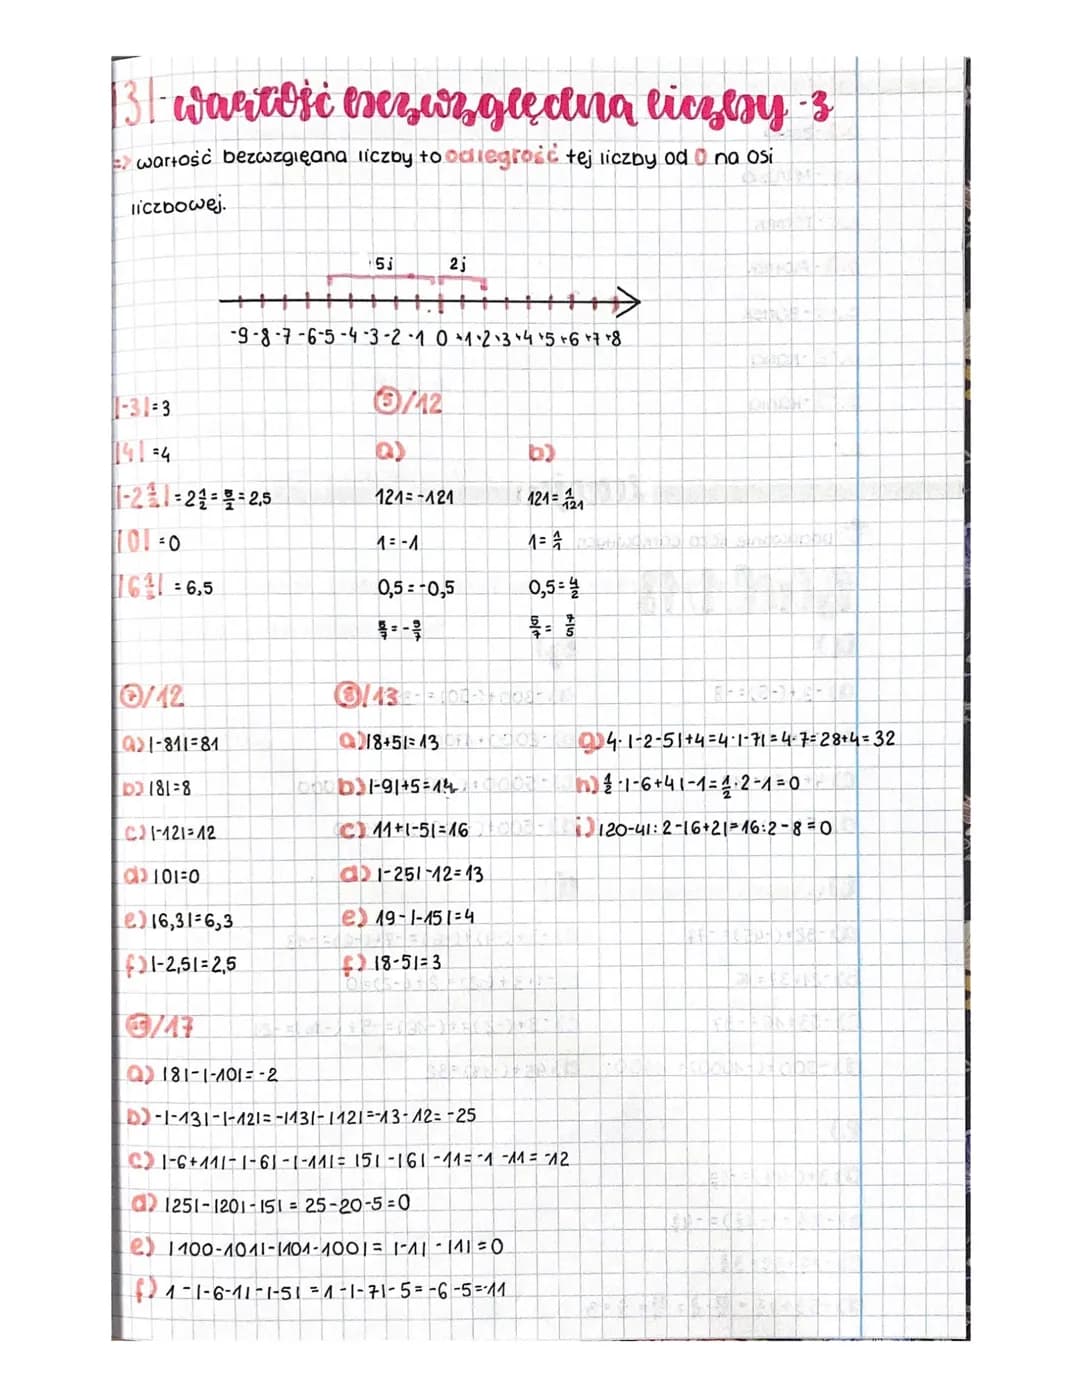 |3|- wartość bezwzględna liczby -3
=> wartość bezwzględna liczby to odległość tej liczby od 0 na osi
liczbowej.
5j 2j
-9 -8 -7 -6 -5 -4 -3 -2 -1 0 +1 +2 +3 +4 +5 +6 +7 +8
|-3|=3
|4|=4
|-2 1/2|=2 1/2=5/2=2,5
|0|=0
|6 1/2|=6,5
5/12
a) b)
121=-121 121=1/121
1=-1 1=1/1
0,5=-0,5
5/7= 7/5
7/12
a) |-81|=81
b) |8|=8
c) |-12|=12
d) |0|=0
e) |6,3|=6,3
f) |-2,5|=2,5
8/13
a) |8+5|=13
b) |-9|+5=14
c) 11+|-5|=16
d) |-25|-12=13
e) 19-|-15|=4
f) |8-5|=3
g) 4·|-2-5|+4=4·|-7|=4·7=28+4=32
h) 1/2·|-6+4|-1=1/2·2-1=0
i) |20-4|:2-|6+2|=16:2-8=0
/17
a) |8|-|-10|=-2
b) -|-13|-|-12|=-|13|-|12|=-13-12=-25
c) |-6+11|-|-6|-|-11|=|5|-|6|-11=-1-11=-12
d) |25|-|20|-|5|=25-20-5=0
e) |100-101|-|101-100|=|-1|-|1|=0
f) 1-|-6-1|-|-5|=1-|-7|-5=-6-5=-11